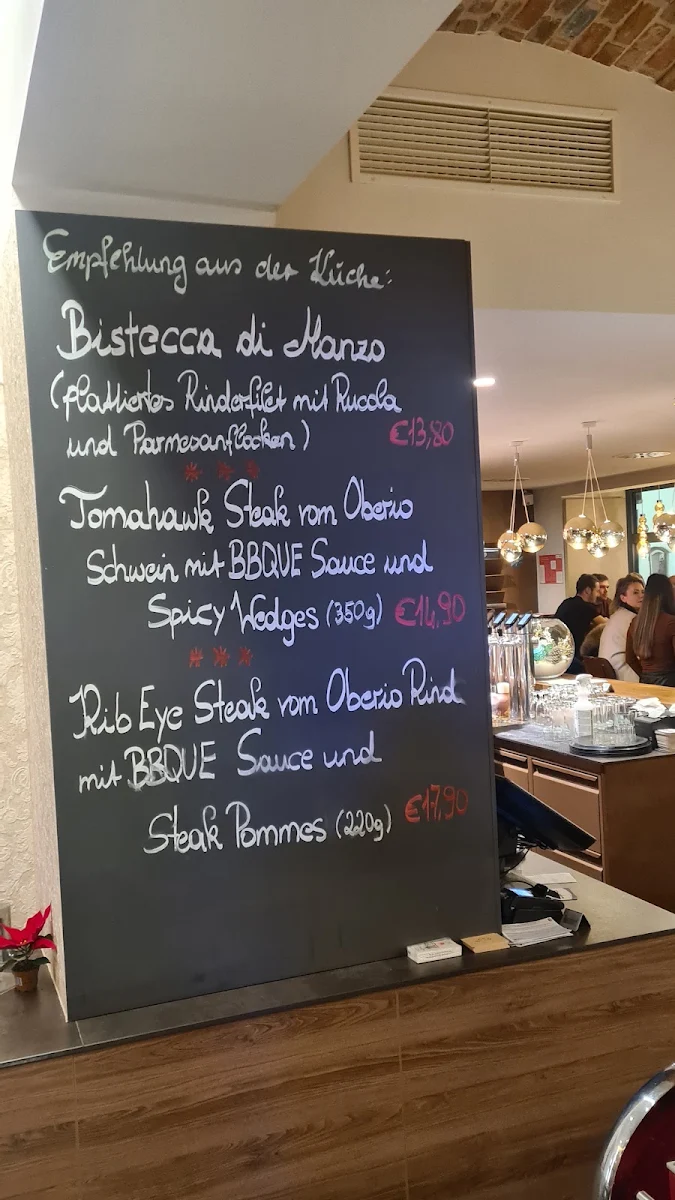 Empfehlung aus der Küche:
Bistecca di Manzo
(plattiertes Rinderfilet mit Rucola
und Parmesanflocken) €13,80
*** 
Tomahawk Steak vom Oberio
Schwein mit BBQUE Sauce und
Spicy Wedges (350g) €14,90
***
Rib Eye Steak vom Oberio Rind
mit BBQUE Sauce und
Steak Pommes (220g) €17,90